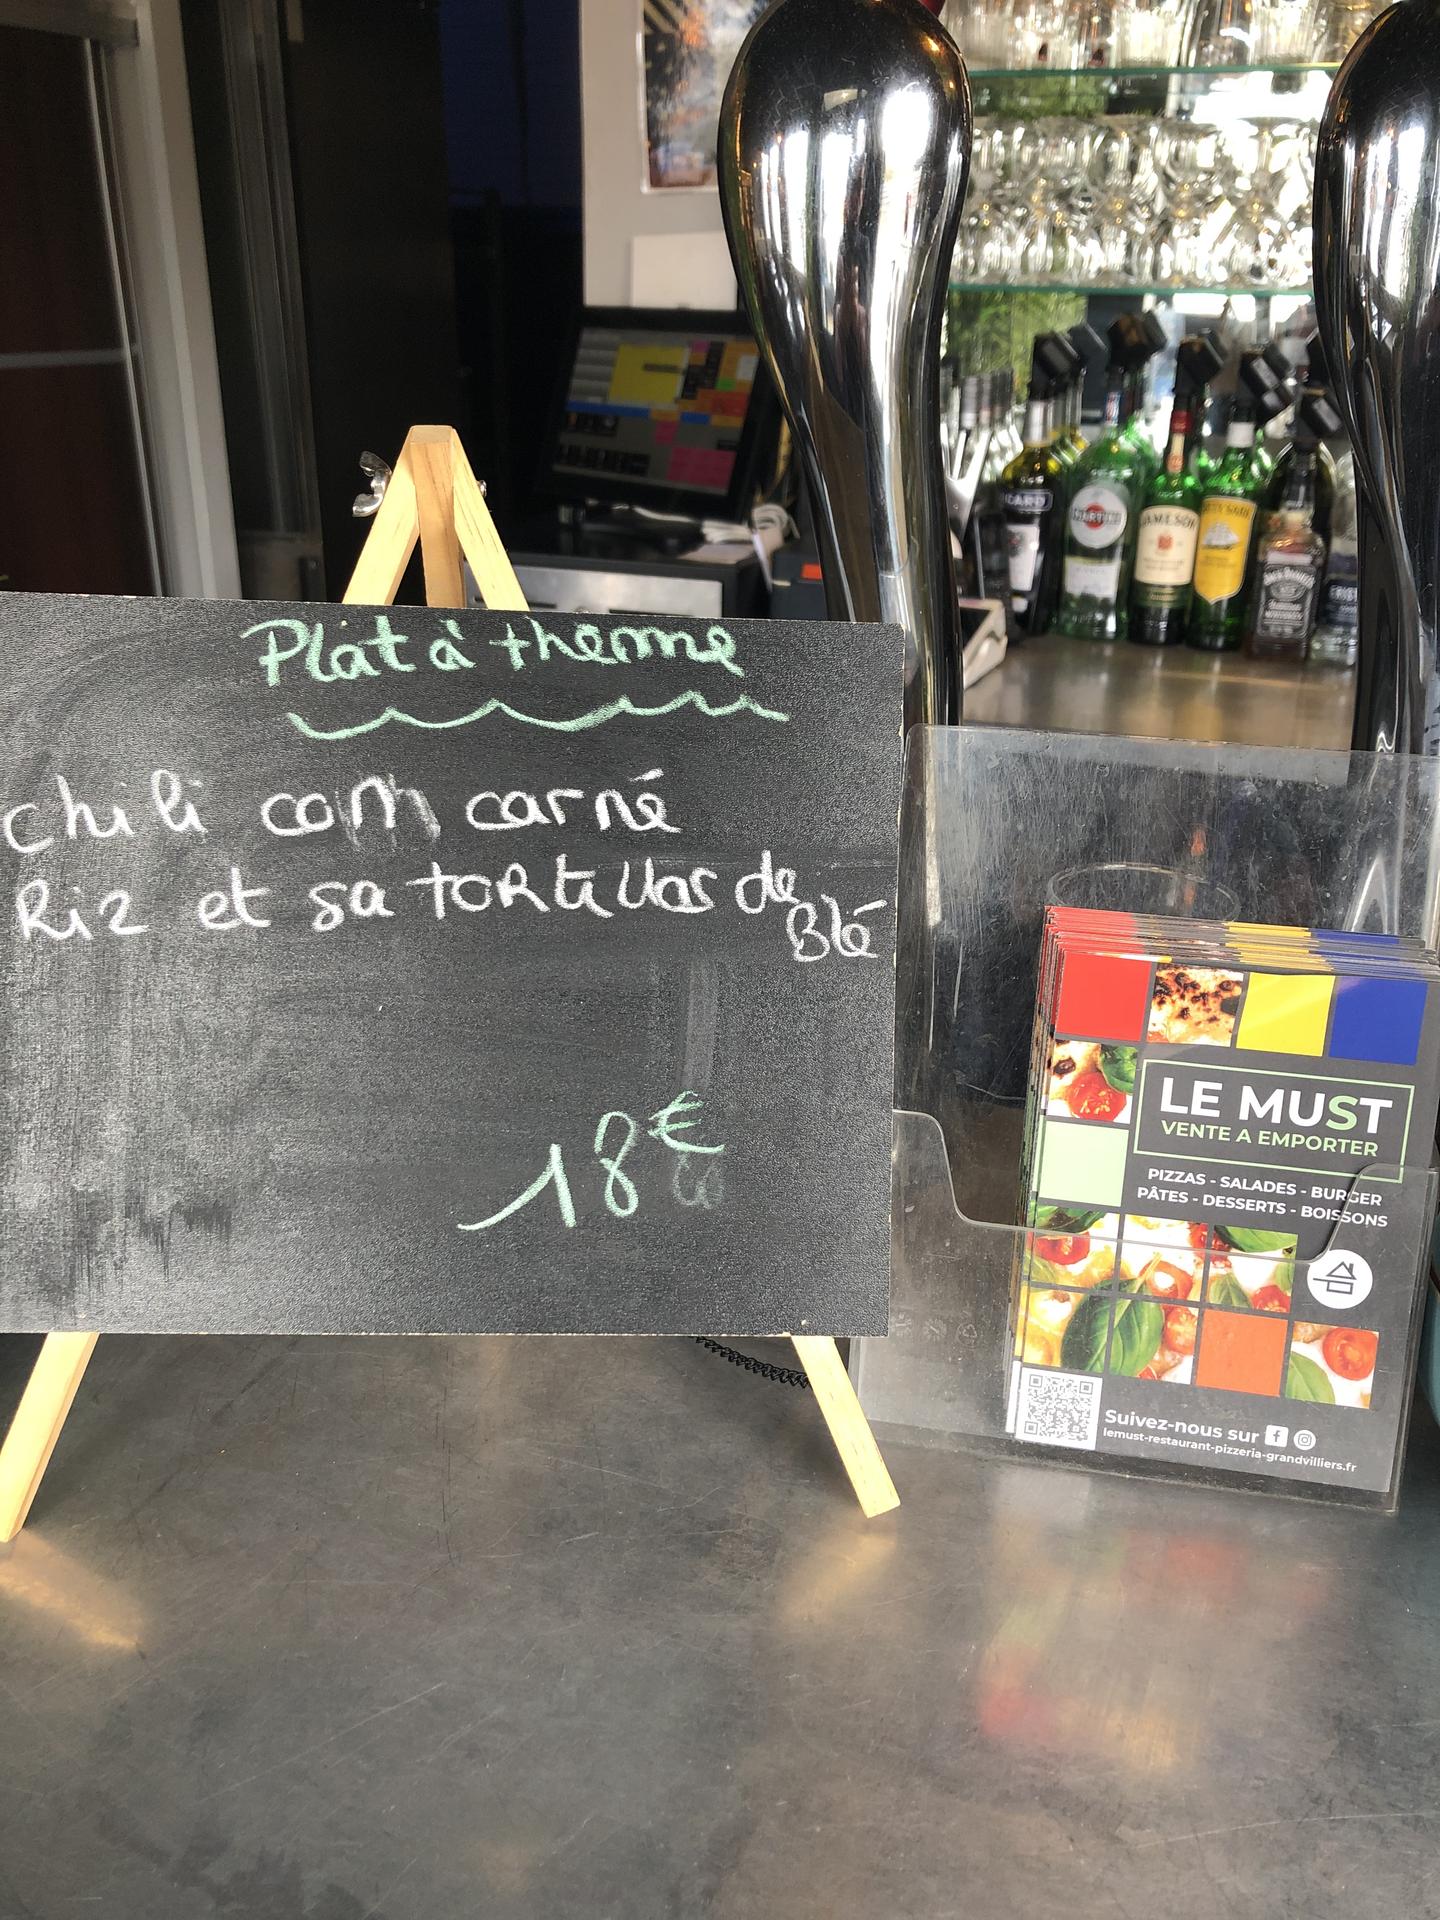 Plat à theme
chili con carné
Riz et sa tortillas de
Blé
18€
PIZZAS - SALADES - BURGER
PÂTES - DESSERTS - BOISSONS
LE MUST
VENTE A EMPORTER
Suivez-nous sur
lemust-restaurant-pizzeria-grandvilliers.fr
MARTINI
JAMESON
CUTTY SARK
JACK DANIEL'S